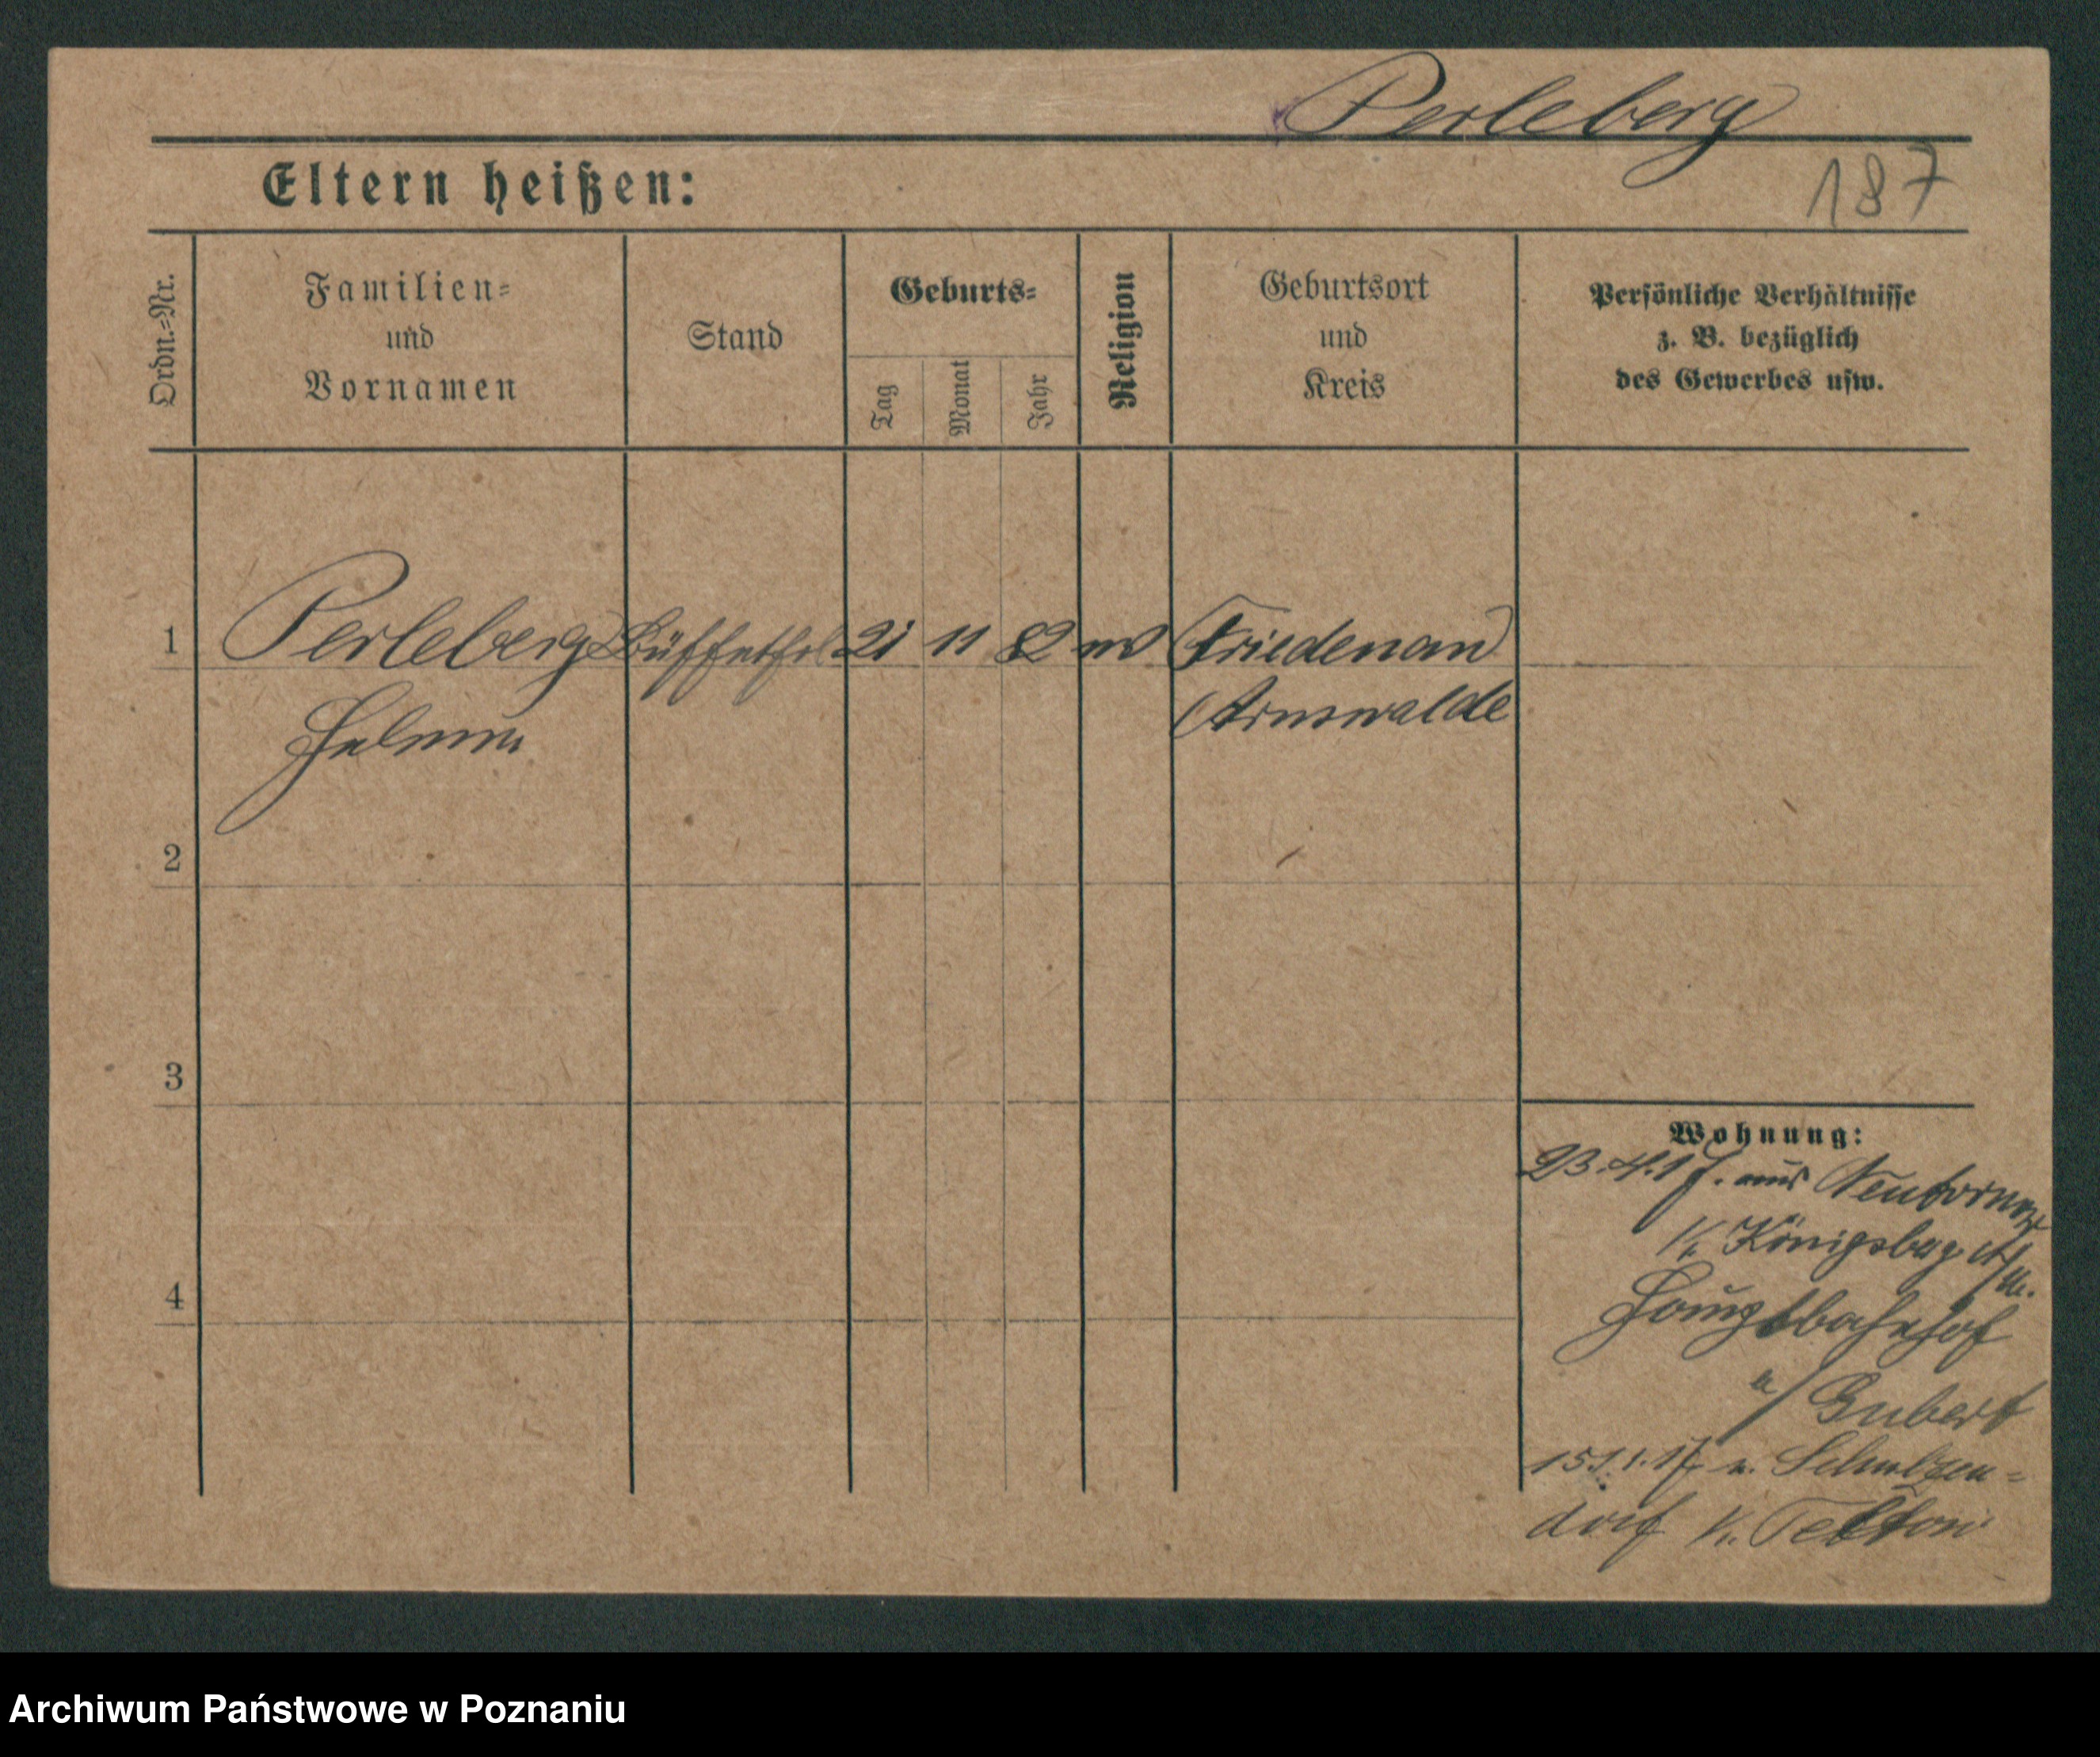 Perleberg
187
Eltern heißen:
Ordn.-Nr.
Familien- und Vornamen
Stand
Geburts-
Tag
Monat
Jahr
Religion
Geburtsort und Kreis
Persönliche Verhältnisse z. B. bezüglich des Gewerbes usw.
1 Perleberg Büffetfrl 21 11 82 Friedenau
Arnswalde
2
3
4
Wohnung:
23.4.17. aus
K. Königsberg N/M.
Hauptbahnhof
b/ Gubert
15.11.17 n. Schulzen-
dorf K. Teltow
Archiwum Państwowe w Poznaniu